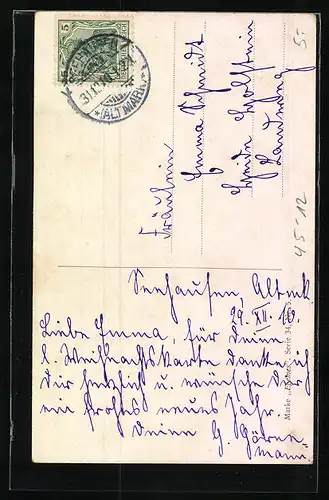 5
(ALTMARK)
Fräulein
Emma Schmidt
Heide Holstein
Landweg
5.-
45-12
Seehausen, Altmk.
29. XII. 10.
Liebe Emma, für Deine
l. Weihnachtskarte danke ich
Dir herzlich u. wünsche Dir
ein frohes neues Jahr.
Deine G. Görne
mann.
Serie 34